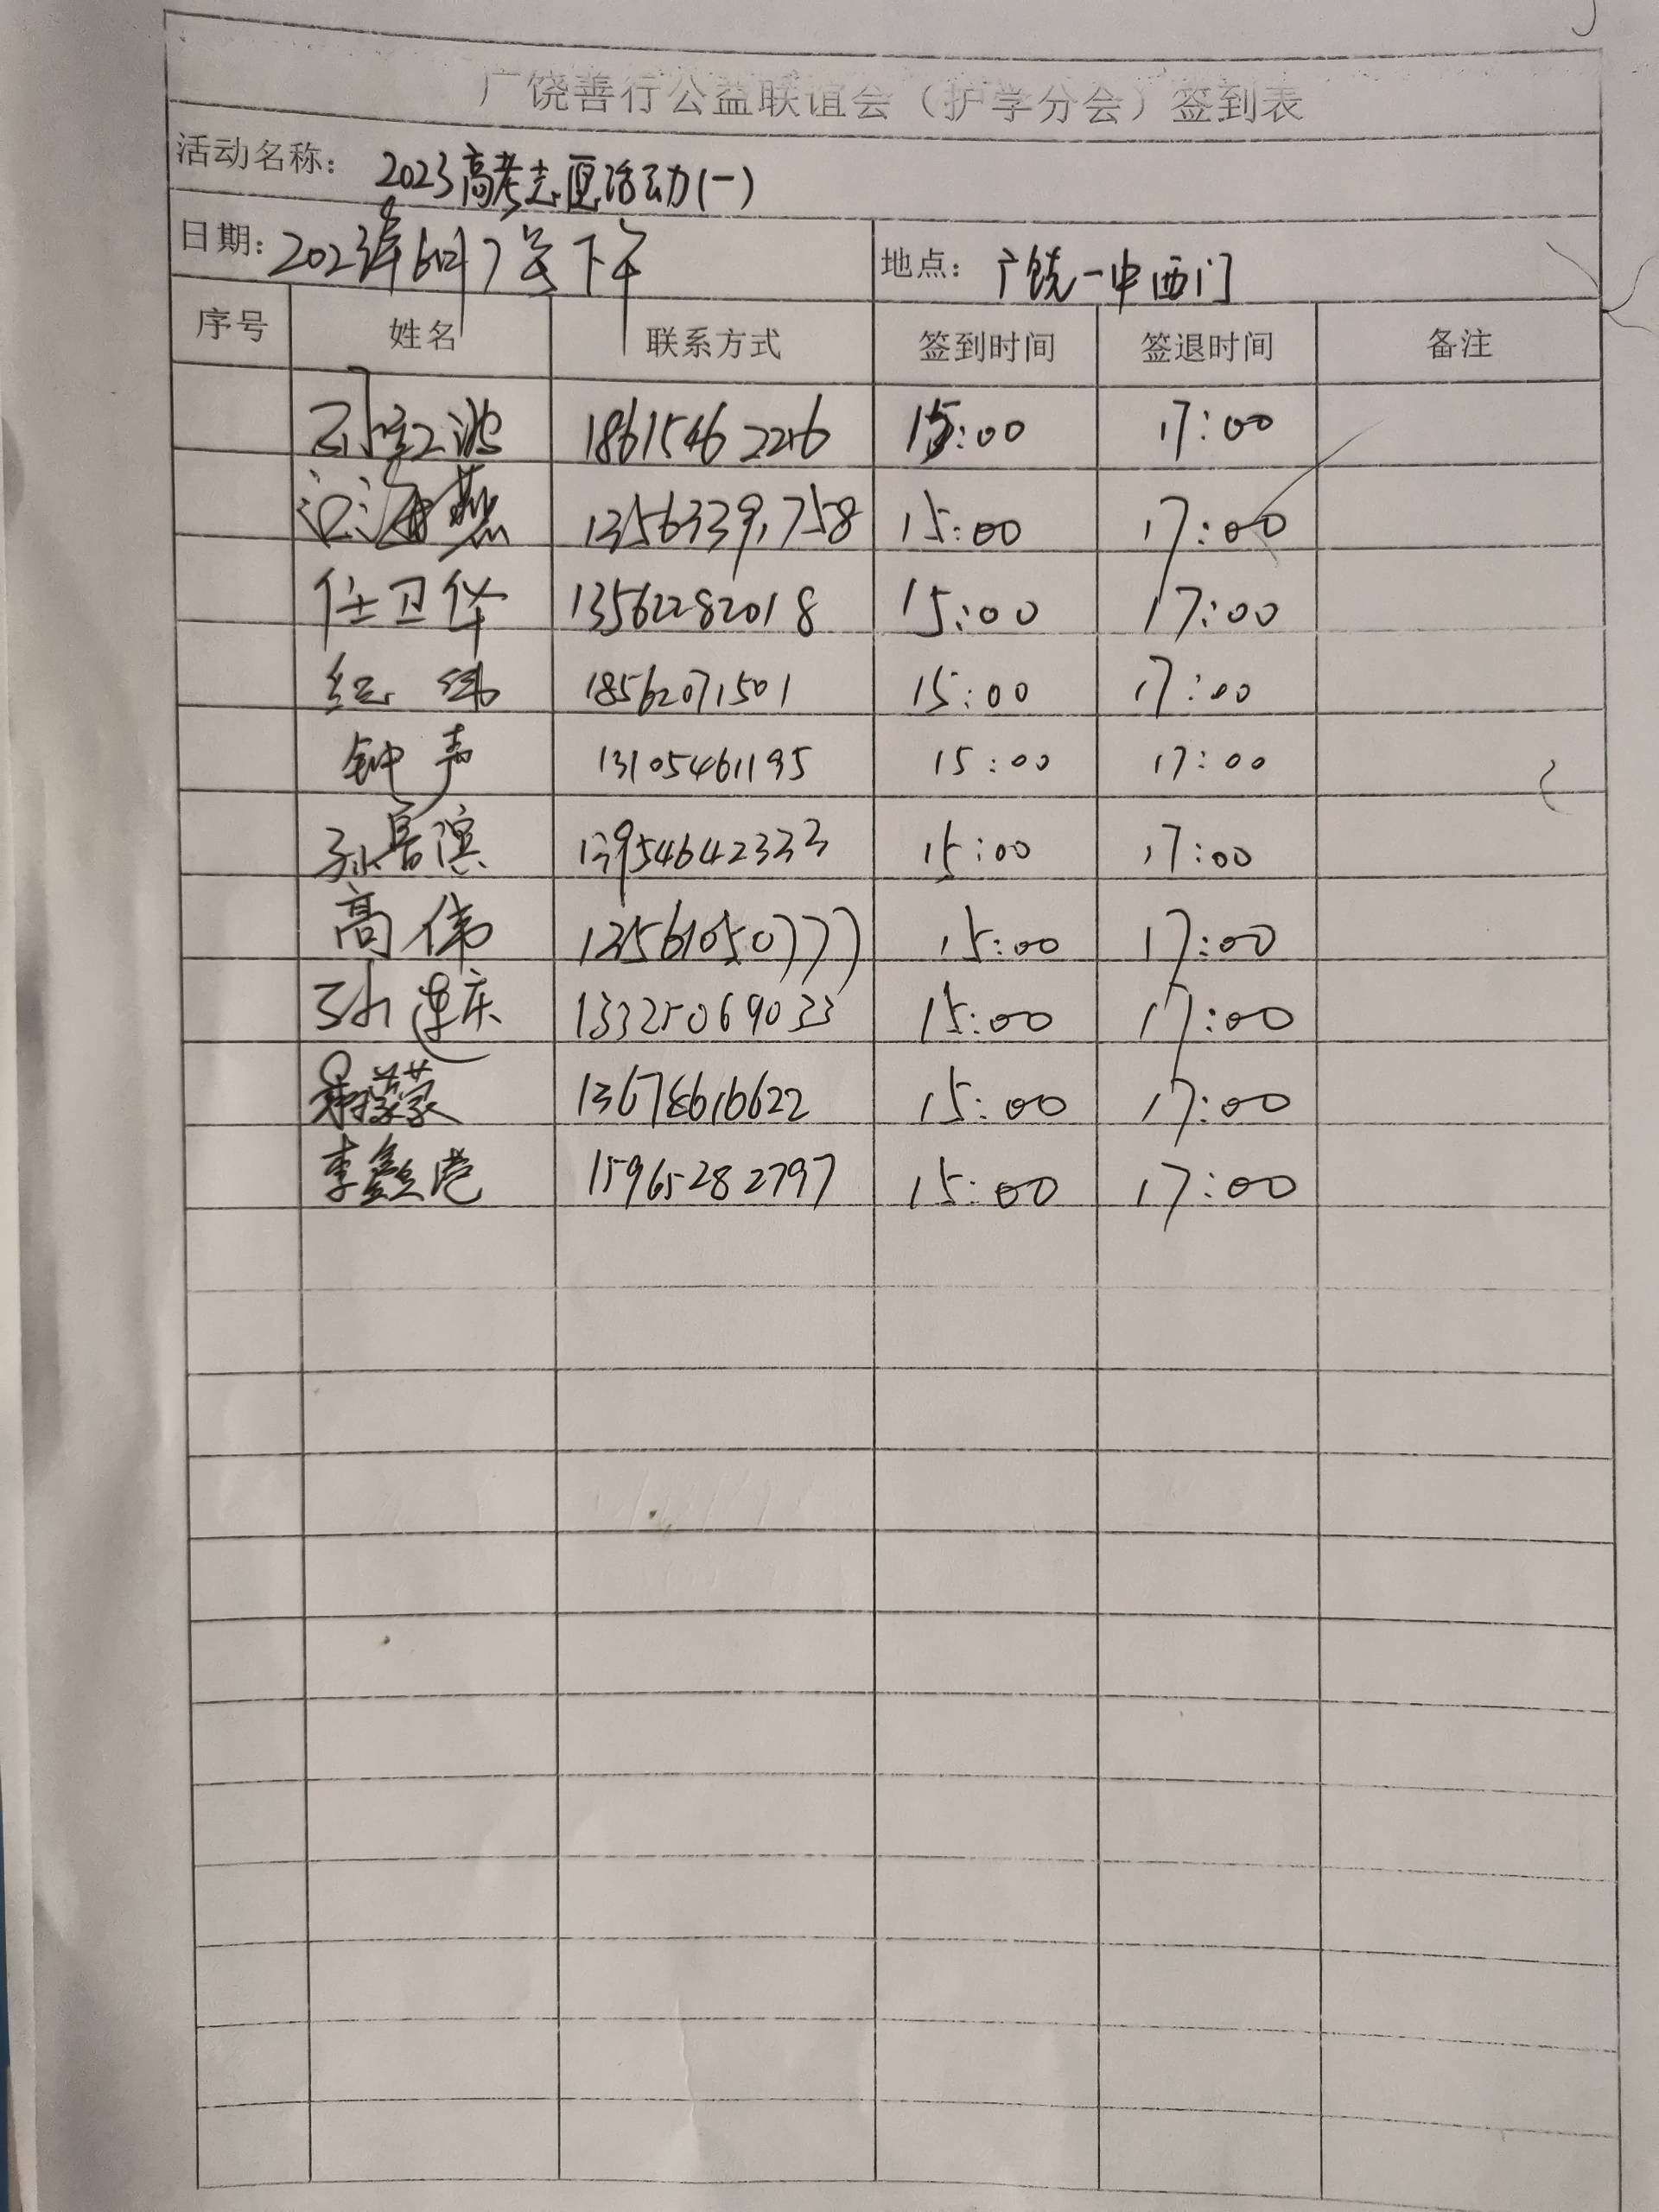 广饶善行公益联谊会（护学分会）签到表
活动名称： 2023高考志愿活动(一)
日期： 2023年6月7号下午 地点： 广饶一中西门
序号 姓名 联系方式 签到时间 签退时间 备注
孙红波 18615462226 15:00 17:00
海燕 13563391758 15:00 17:00
任卫华 13562282018 15:00 17:00
纪伟 18562071501 15:00 17:00
钟声 13105461195 15:00 17:00
孙居滨 13954642333 15:00 17:00
高伟 13561050777 15:00 17:00
孙连庆 13325069033 15:00 17:00
13678616622 15:00 17:00
李鑫港 15965282797 15:00 17:00